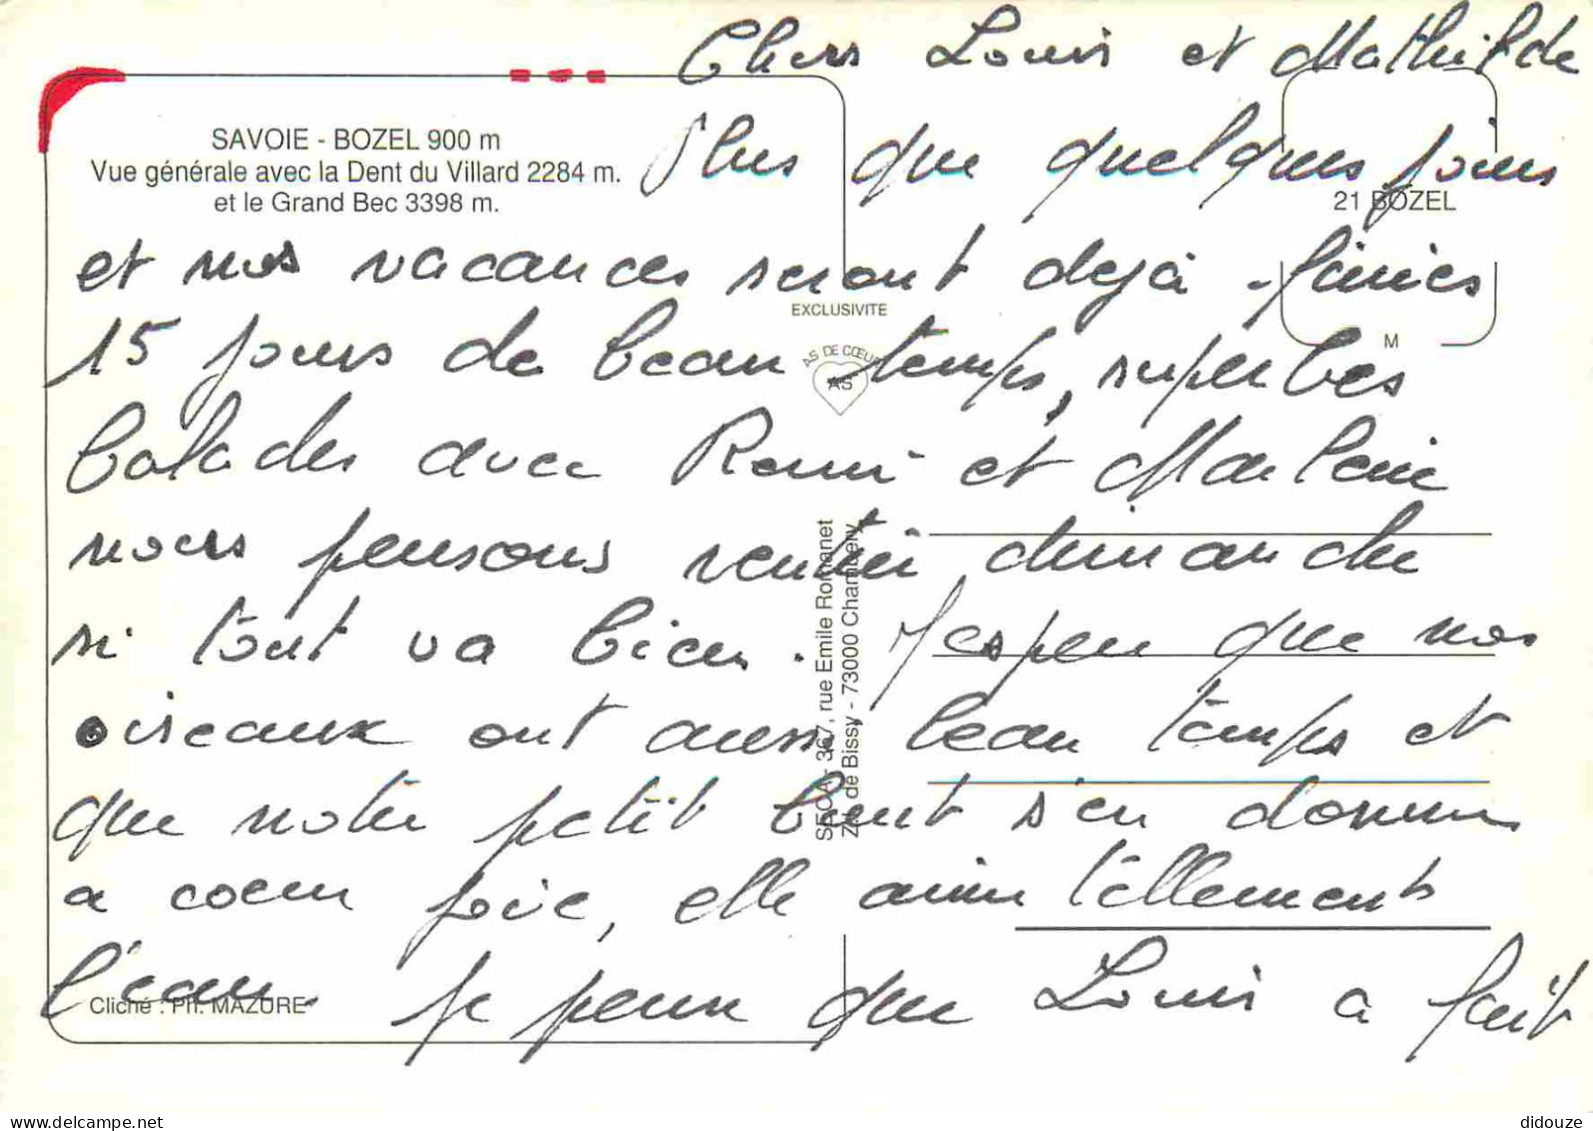 Chers Louis et Mathilde
SAVOIE - BOZEL 900 m
Vue générale avec la Dent du Villard 2284 m.
et le Grand Bec 3398 m.
Plus que quelques jours
21 BOZEL
et nos vacances seront dejà finies
EXCLUSIVITE
M
15 jours de beau temps, superbes
AS DE CŒUR
AS
balades avec Remi et
nous pensons rentrer dimanche
si tout va bien. J'espere que nos
oiseaux ont aussi beau temps et
que notre petit s'en donne
a coeur joie, elle aime tellements
l'eau. Je pense que Louis a fait
Cliché : Ph. MAZURE
SECA - 367, rue Emile Romanet
Z.I. de Bissy - 73000 Chambéry
delcampe.net
didouze